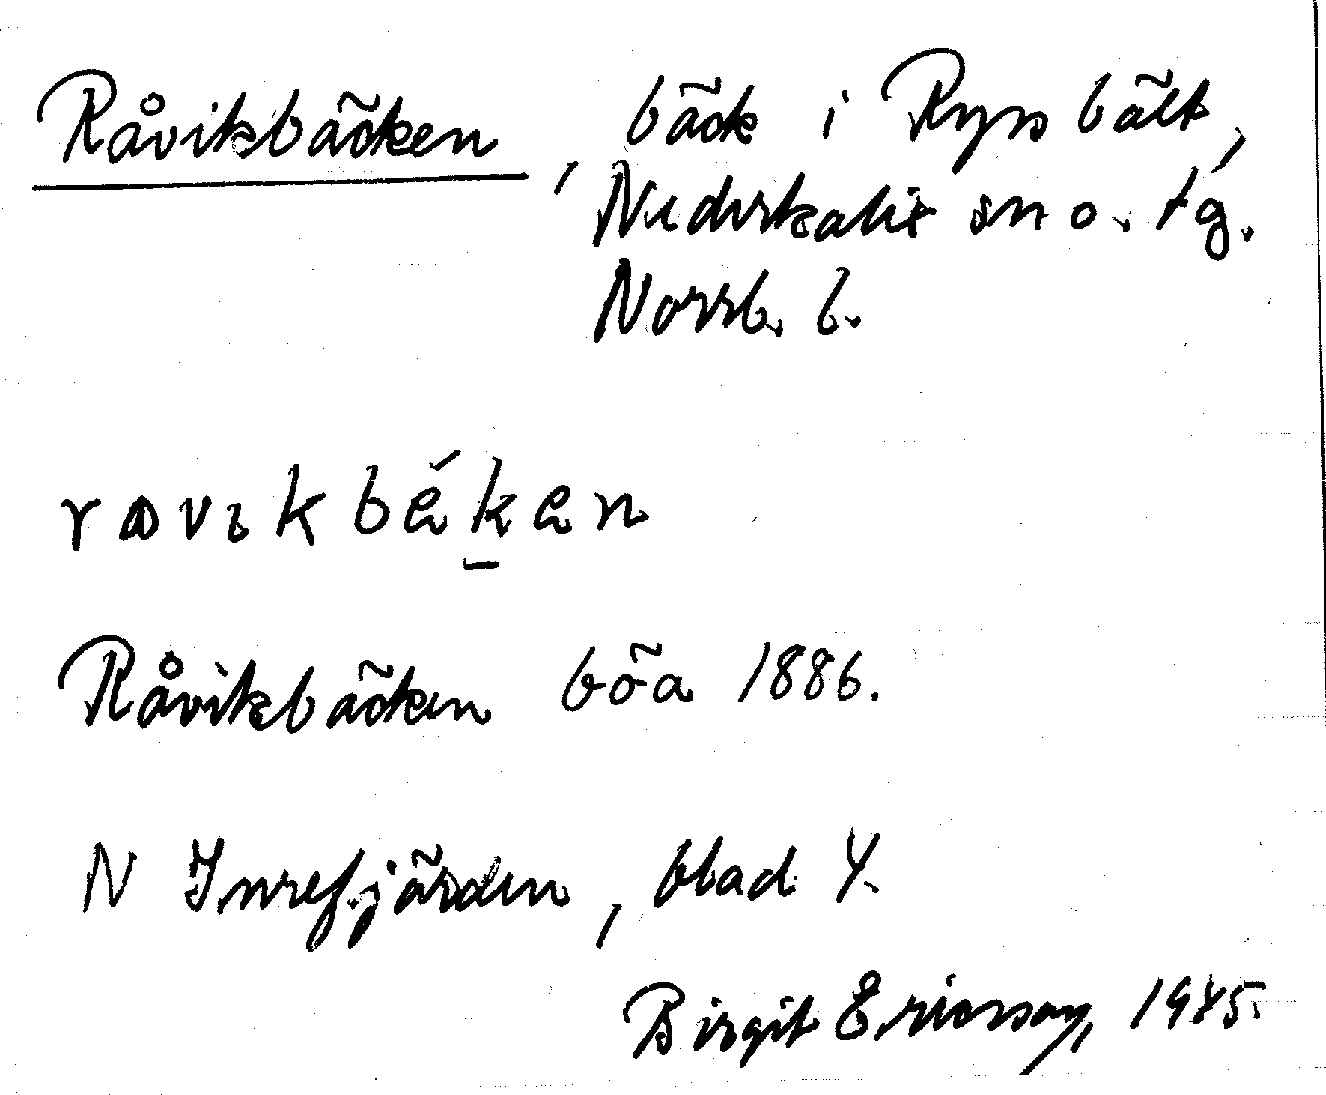 Råvikbäcken, bäck i Ryssbält,
Nederkalix sn o. tg.
Norrb. l.
Råvikbäcken böa 1886.
N Inrefjärden, blad Y.
Birgit Ericsson, 1945.